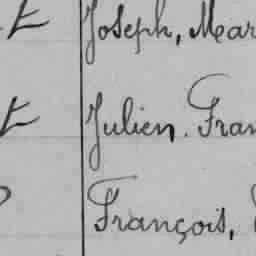 Joseph, Mar
Julien. Fran
François,